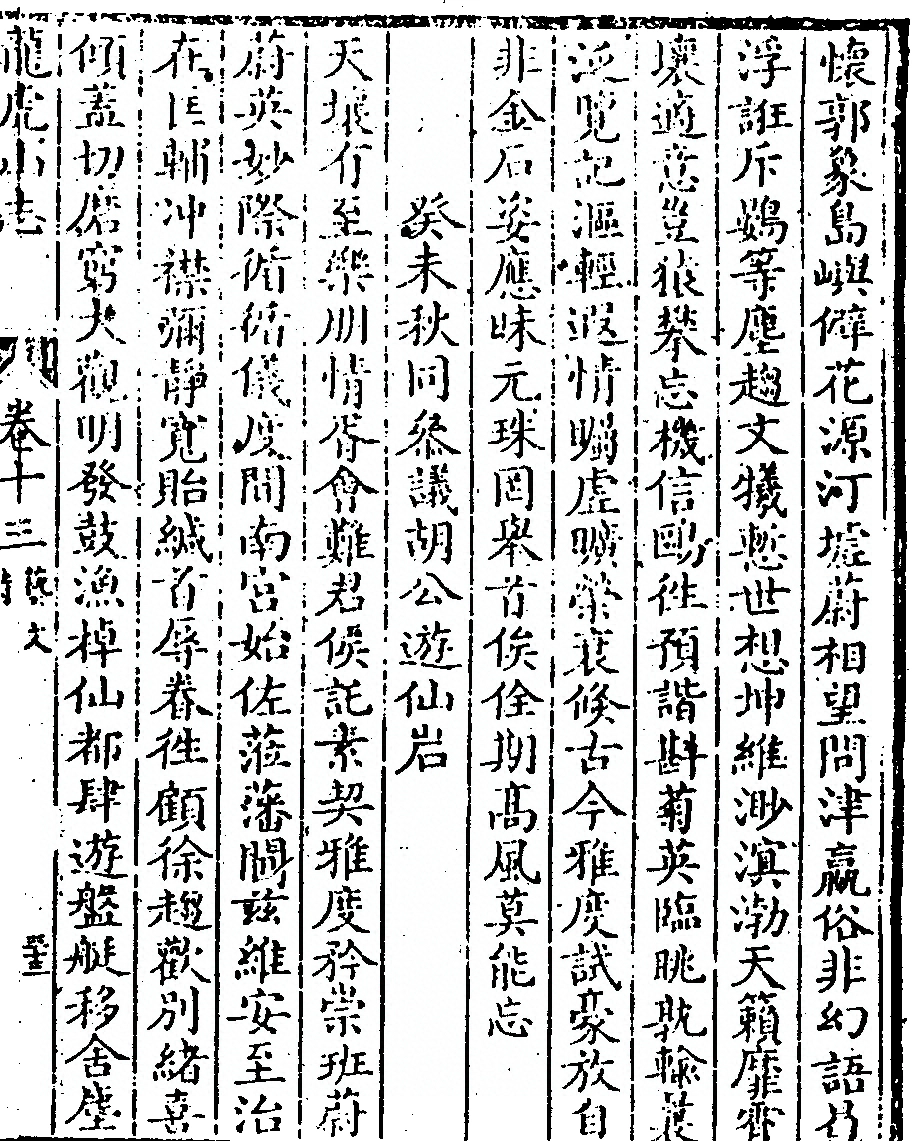 懷郭象島嶼僻花源汀墟蔚相望問津嬴俗非幻語
浮誑斥鷃等塵趨文犧慙世想坤維渺溟渤天籟靡
壞適慈豈猿攀忘機信鷗徃預諧斟菊英臨眺躭輸
泛覽記漚輕遐情矚虛曠榮衰倏古今雅度試豪放自
非金石姿應昧元珠罔舉首俟佺期高風莫能忘
癸未秋同叅議胡公遊仙岩
天壤有至樂朋情胥會難君侯託素契雅度矜崇班蔚
蔚英妙際循循儀度間南宮始佐蒞藩閫兹維安至治
在匡輔冲襟彌靜寬貽緘首辱眷徃顧徐趨歡別緒喜
傾蓋切偕窮大觀明發鼓漁棹仙都肆遊盤艇移舍塵
龍虎山志
卷十三
藝文